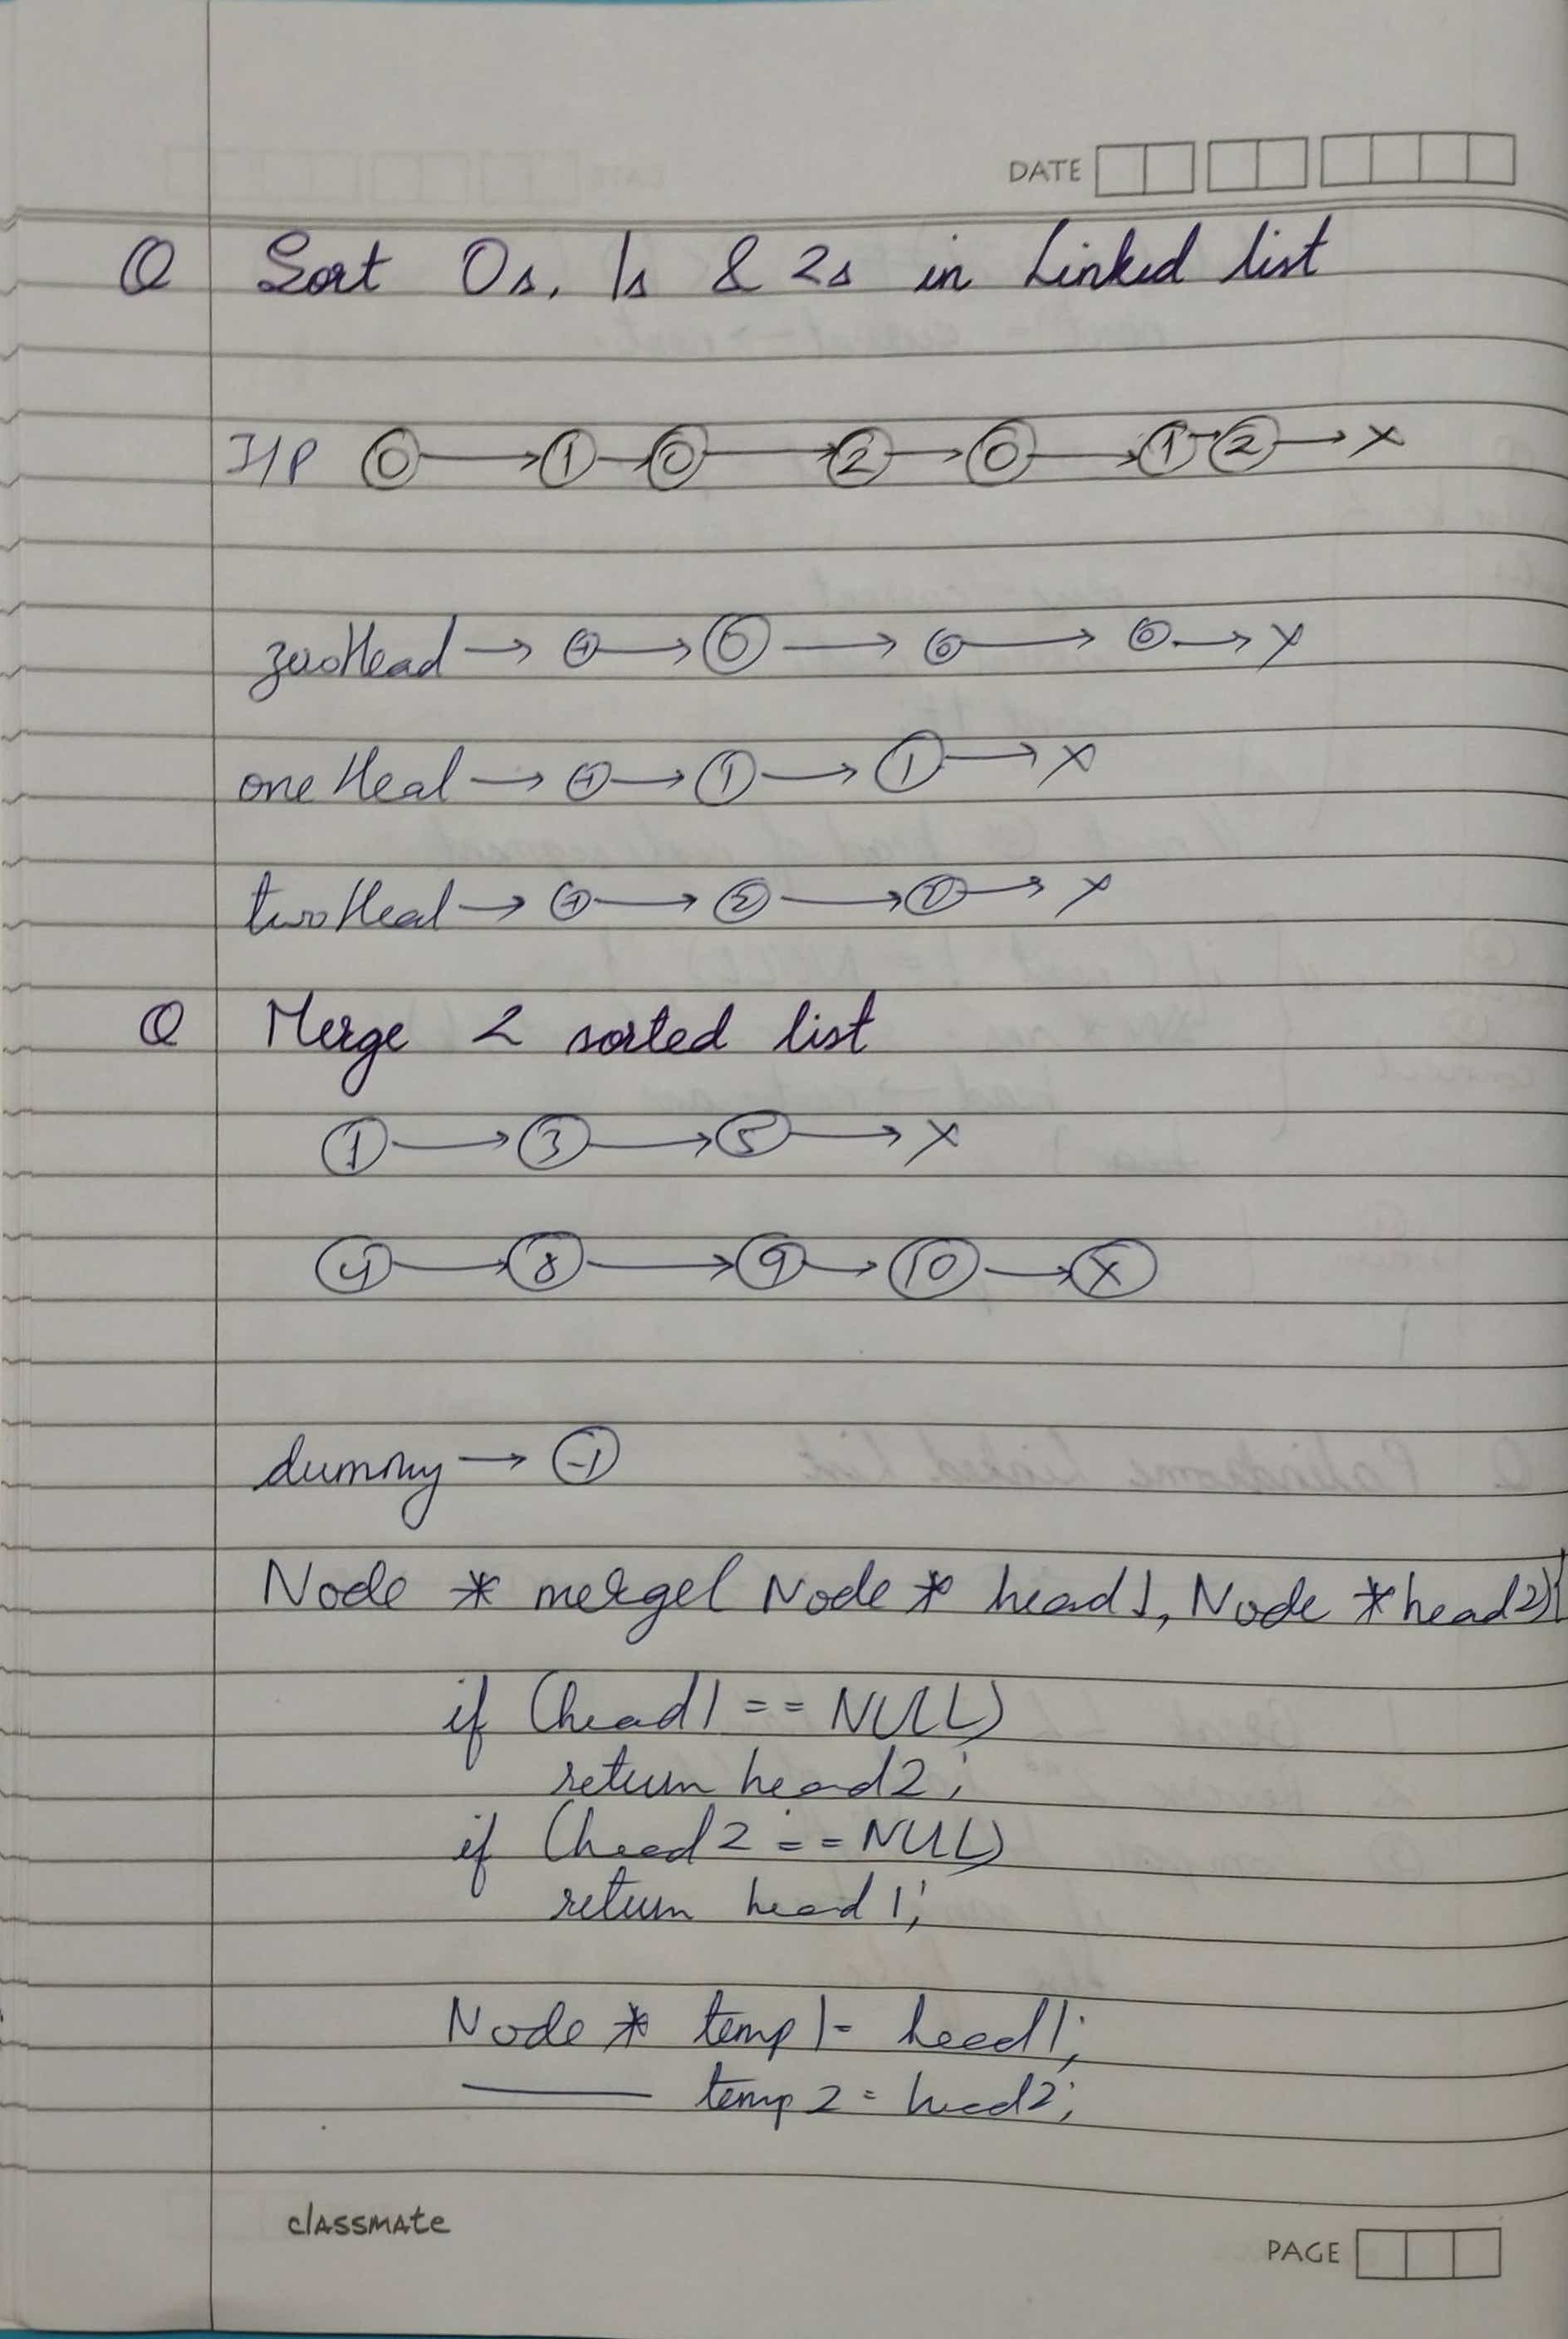 DATE
Q Sort 0s, 1s & 2s in Linked list
I/P 0 → 1 → 0 → 2 → 0 → 1 → 2 → X
zeroHead → -1 → 0 → 0 → 0 → X
oneHead → -1 → 1 → 1 → X
twoHead → -1 → 2 → 2 → X
Q Merge 2 sorted list
1 → 3 → 5 → X
4 → 8 → 9 → 10 → X
dummy → -1
Node * merge( Node * head1, Node * head2){
if (head1 == NULL)
return head2;
if (head2 == NULL)
return head1;
Node * temp1 = head1;
—— temp2 = head2;
classmate
PAGE